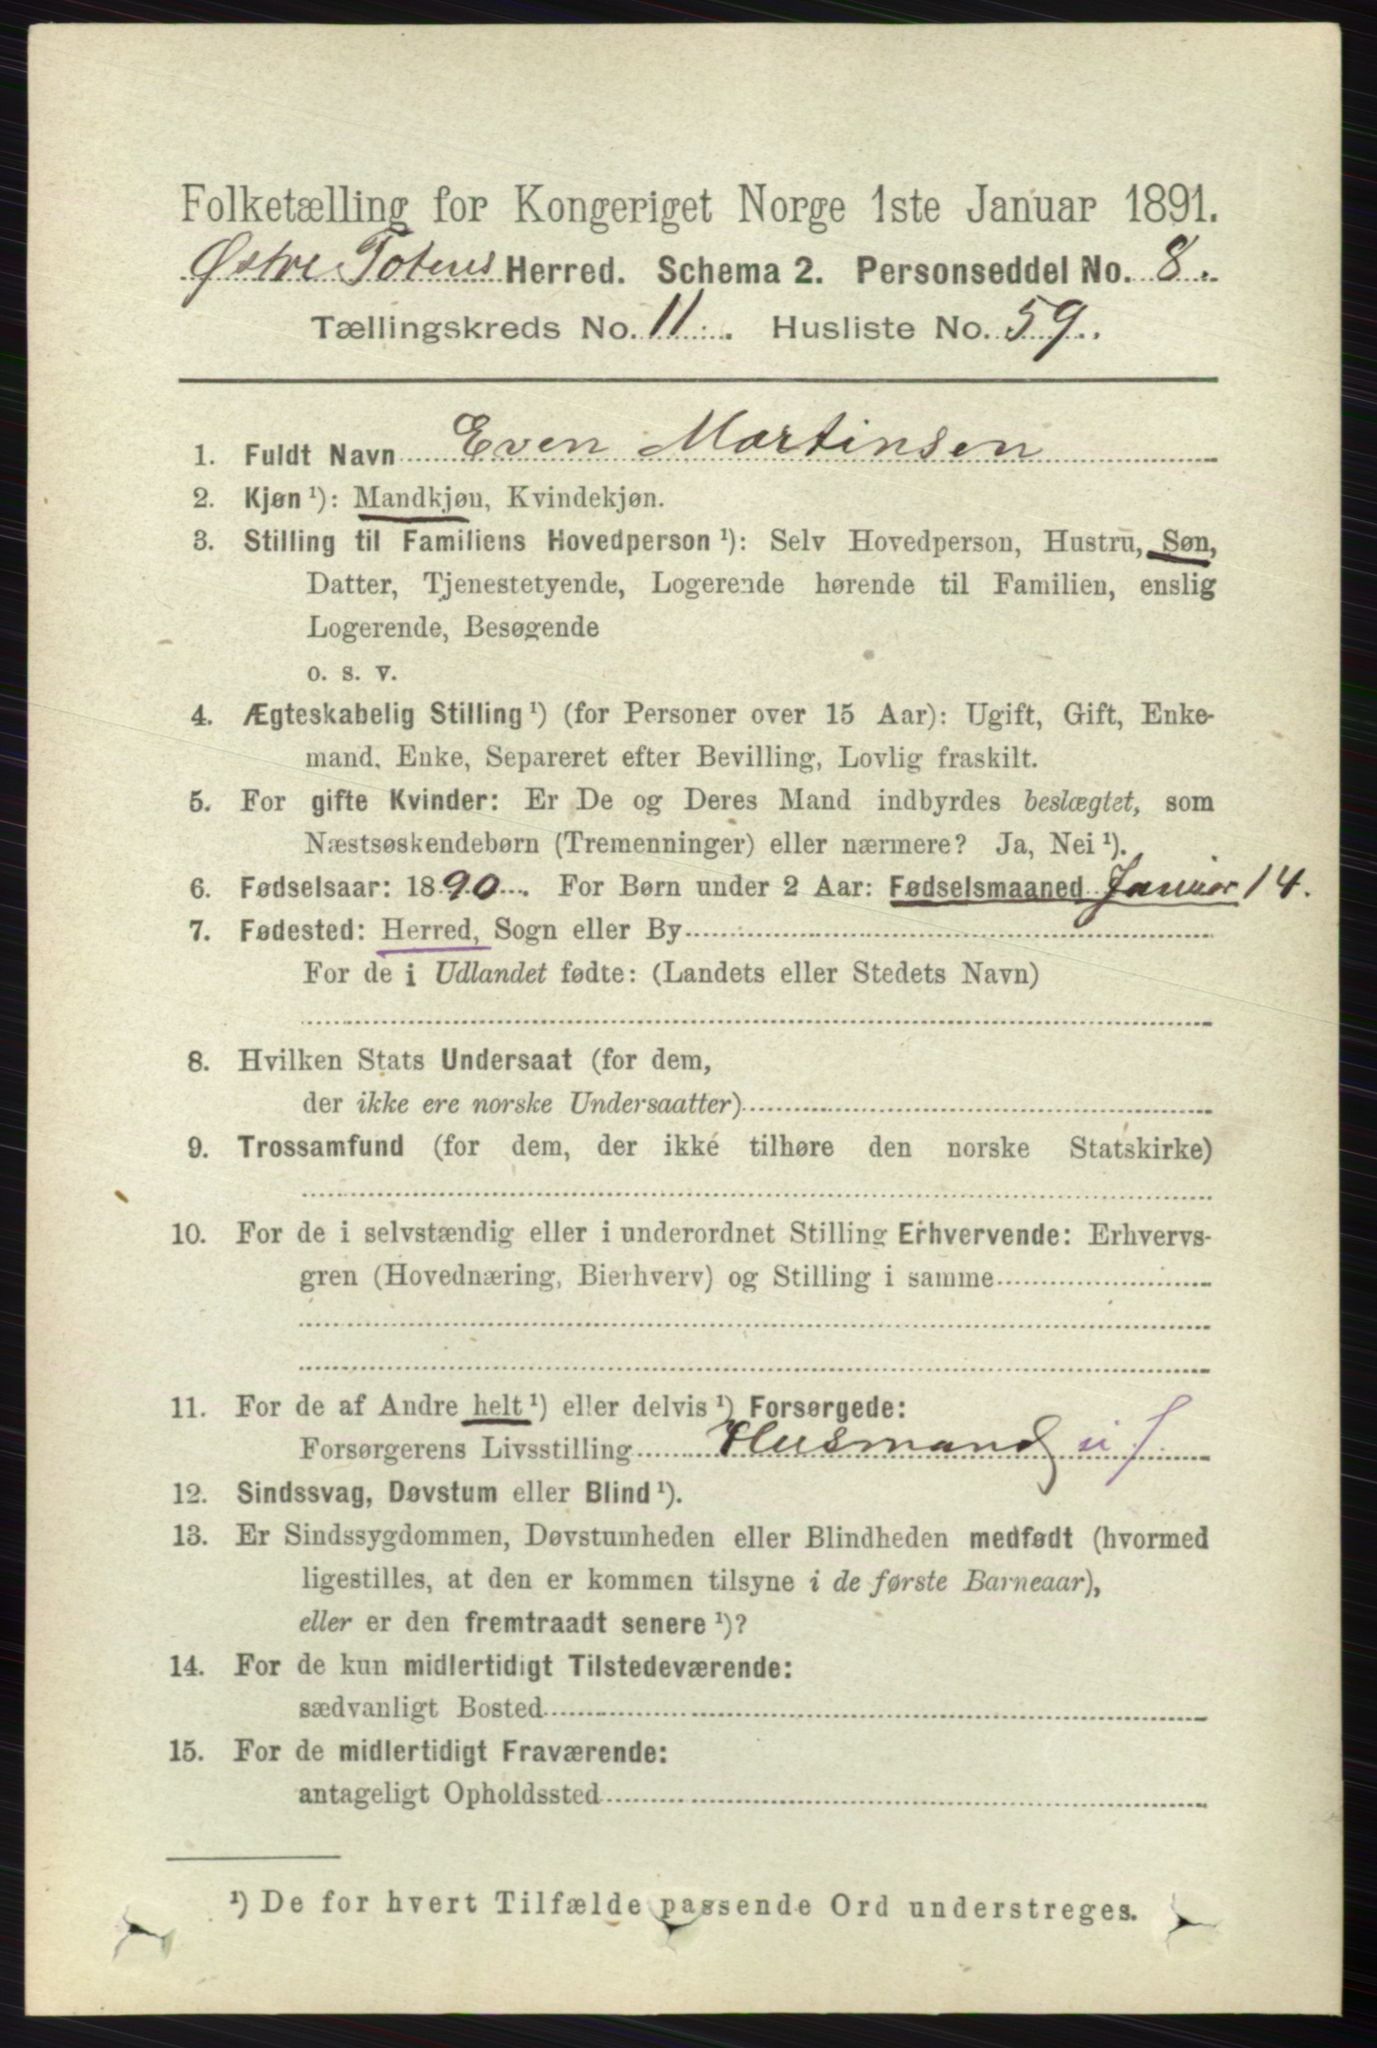 Folketælling for Kongeriget Norge 1ste Januar 1891.
Østre Totens Herred. Schema 2. Personseddel No. 8.
Tællingskreds No. 11. Husliste No. 59.
1. Fuldt Navn Even Martinsen
2. Kjøn ¹): Mandkjøn, Kvindekjøn.
3. Stilling til Familiens Hovedperson ¹): Selv Hovedperson, Hustru, Søn,
Datter, Tjenestetyende, Logerende hørende til Familien, enslig
Logerende, Besøgende
o. s. v.
4. Ægteskabelig Stilling ¹) (for Personer over 15 Aar): Ugift, Gift, Enke-
mand, Enke, Separeret efter Bevilling, Lovlig fraskilt.
5. For gifte Kvinder: Er De og Deres Mand indbyrdes beslægtet, som
Næstsøskendebørn (Tremenninger) eller nærmere? Ja, Nei ¹).
6. Fødselsaar: 1890. For Børn under 2 Aar: Fødselsmaaned Januar 14.
7. Fødested: Herred, Sogn eller By
For de i Udlandet fødte: (Landets eller Stedets Navn)
8. Hvilken Stats Undersaat (for dem,
der ikke ere norske Undersaatter)
9. Trossamfund (for dem, der ikke tilhøre den norske Statskirke)
10. For de i selvstændig eller i underordnet Stilling Erhvervende: Erhvervs-
gren (Hovednæring, Bierhverv) og Stilling i samme
11. For de af Andre helt ¹) eller delvis ¹) Forsørgede:
Forsørgerens Livsstilling Husmand
12. Sindssvag, Døvstum eller Blind ¹).
13. Er Sindssygdommen, Døvstumheden eller Blindheden medfødt (hvormed
ligestilles, at den er kommen tilsyne i de første Barneaar),
eller er den fremtraadt senere ¹)?
14. For de kun midlertidigt Tilstedeværende:
sædvanligt Bosted
15. For de midlertidigt Fraværende:
antageligt Opholdssted
¹) De for hvert Tilfælde passende Ord understreges.